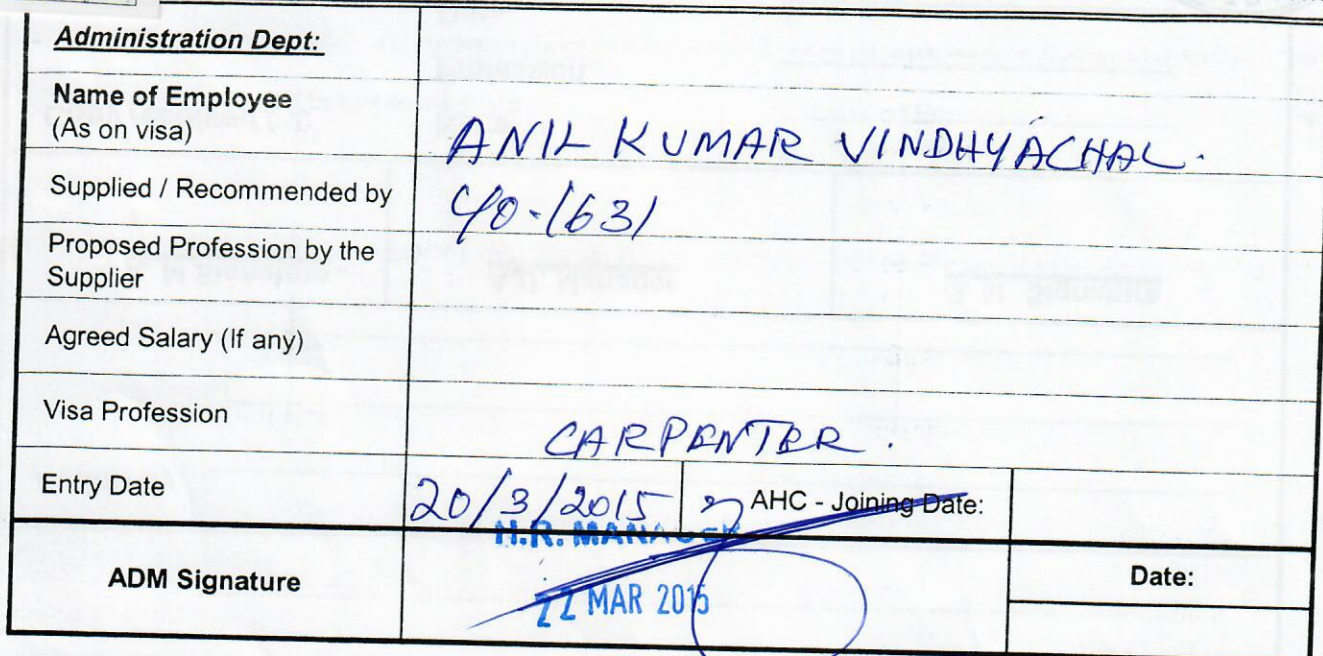 Administration Dept:
Name of Employee
(As on visa)
ANIL KUMAR VINDHYACHAL.
Supplied / Recommended by
Proposed Profession by the
Supplier
Agreed Salary (If any)
Visa Profession
CARPENTER.
Entry Date
20/3/2015
AHC - Joining Date:
H.R. MANAGER
ADM Signature
22 MAR 2015
Date: